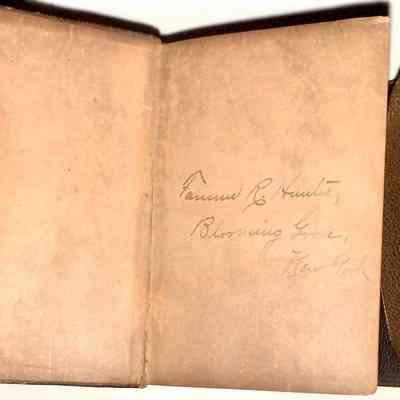 Fannie R. Hunter,
Blooming Grove,
New York